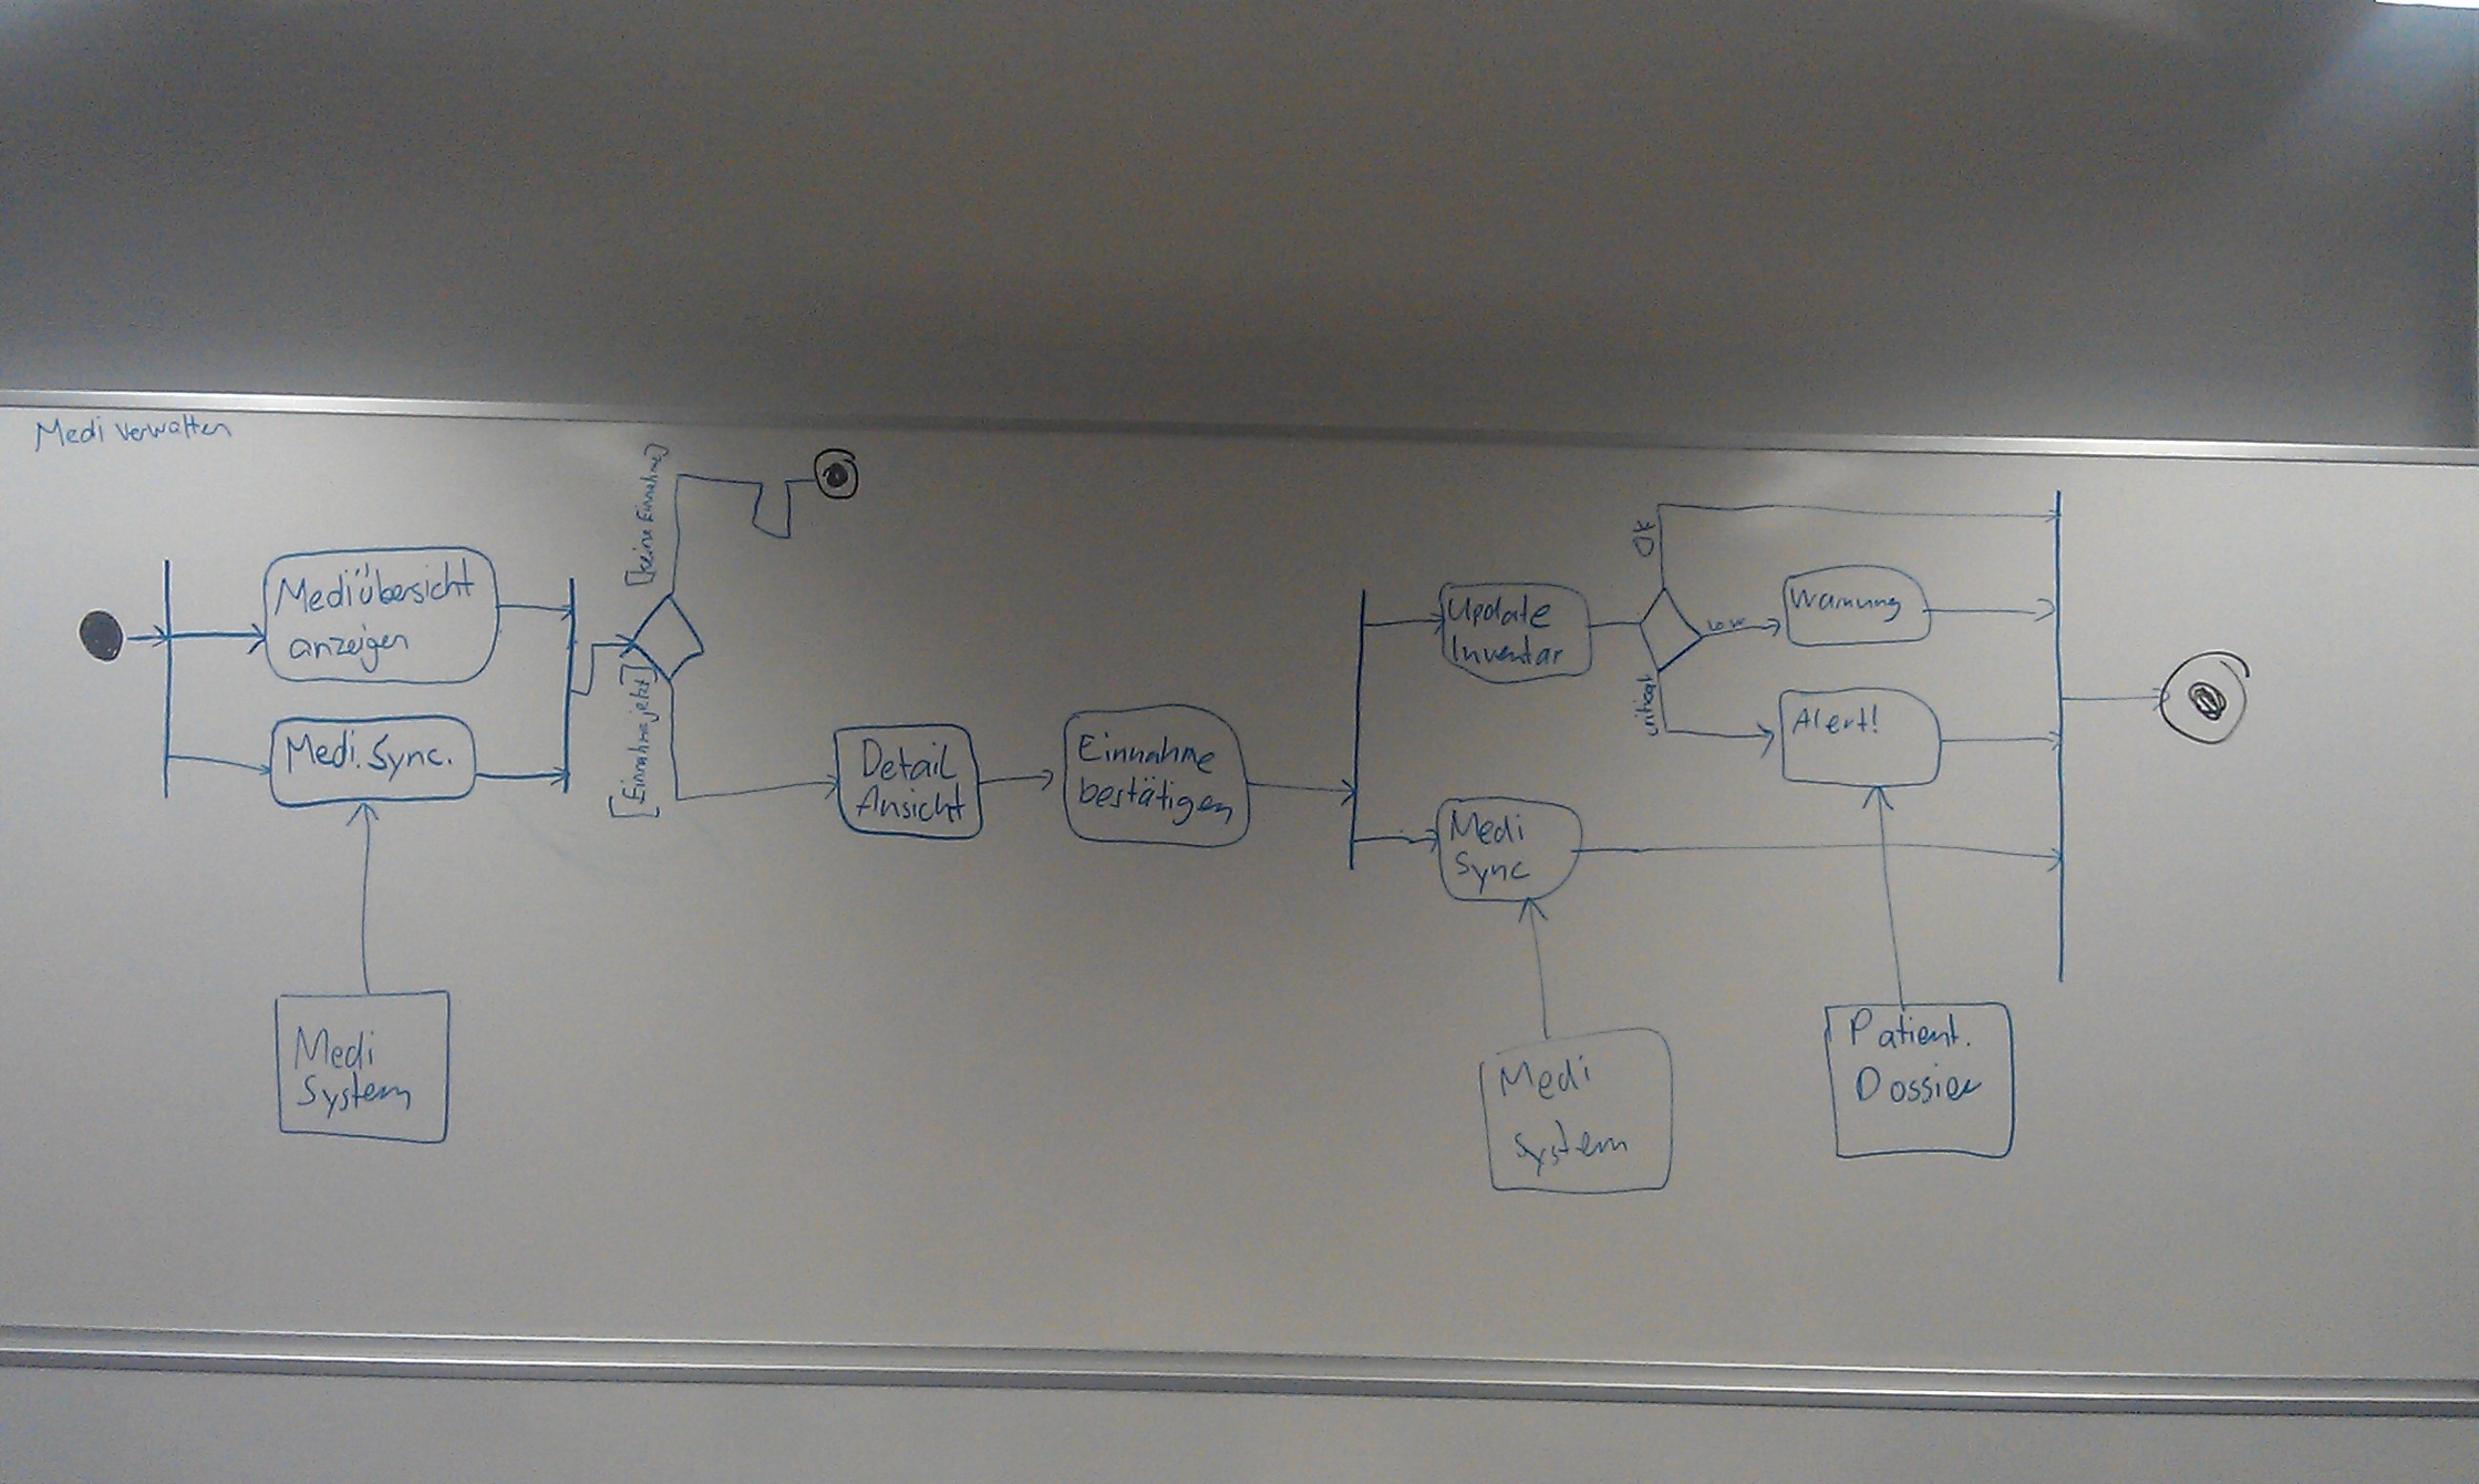 Medi verwalten
Mediübersicht
anzeigen
Medi. Sync.
Medi
System
[keine Einnahme]
[Einnahme jetzt]
Detail
Ansicht
Einnahme
bestätigen
Update
Inventar
Medi
Sync
Medi
System
OK
Low
critical
Warnung
Alert!
Patient.
Dossier